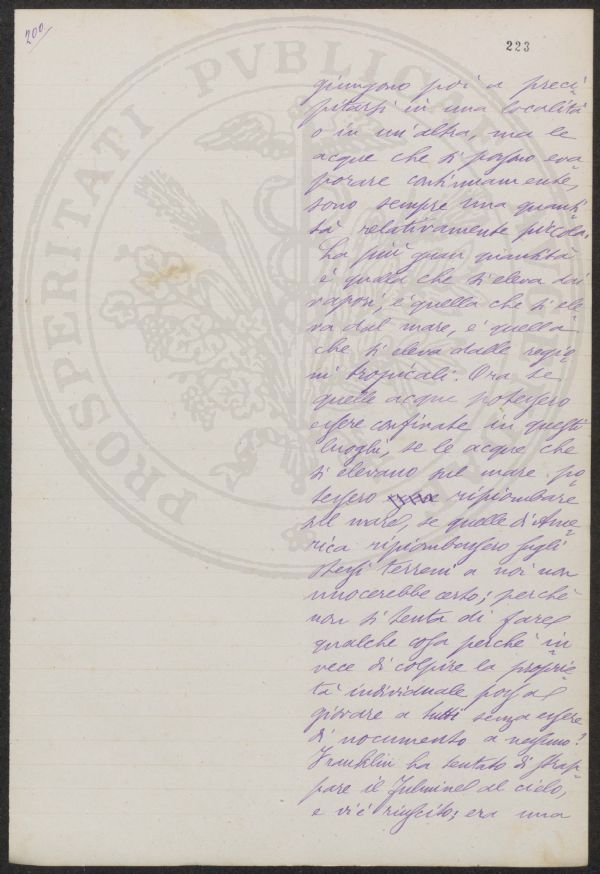 200
223
PROSPERITATI PVBLICAE
giungono poi a preci
pitarsi in una località
o in un'altra, ma le
acque che si possono eva
porare continuamente,
sono sempre una quanti
tà relativamente piccola.
La più gran quantità
è quella che si eleva dai
vapori, è quella che si ele
va dal mare, è quella
che si eleva dalle regio
ni tropicali. Ora se
quelle acque potessero
essere confinate in questi
luoghi, se le acque che
si elevano sul mare po
tessero ripiombare
sul mare, se quelle di Ame
rica ripiombassero sugli
stessi terreni a noi non
nuocerebbe certo; perchè
non si tenta di fare
qualche cosa perchè in
vece di colpire la proprie
tà individuale possa
giovare a tutti senza essere
di nocumento a nessuno?
Franklin ha tentato di strap
pare il fulmine al cielo,
e vi è riuscito; era una